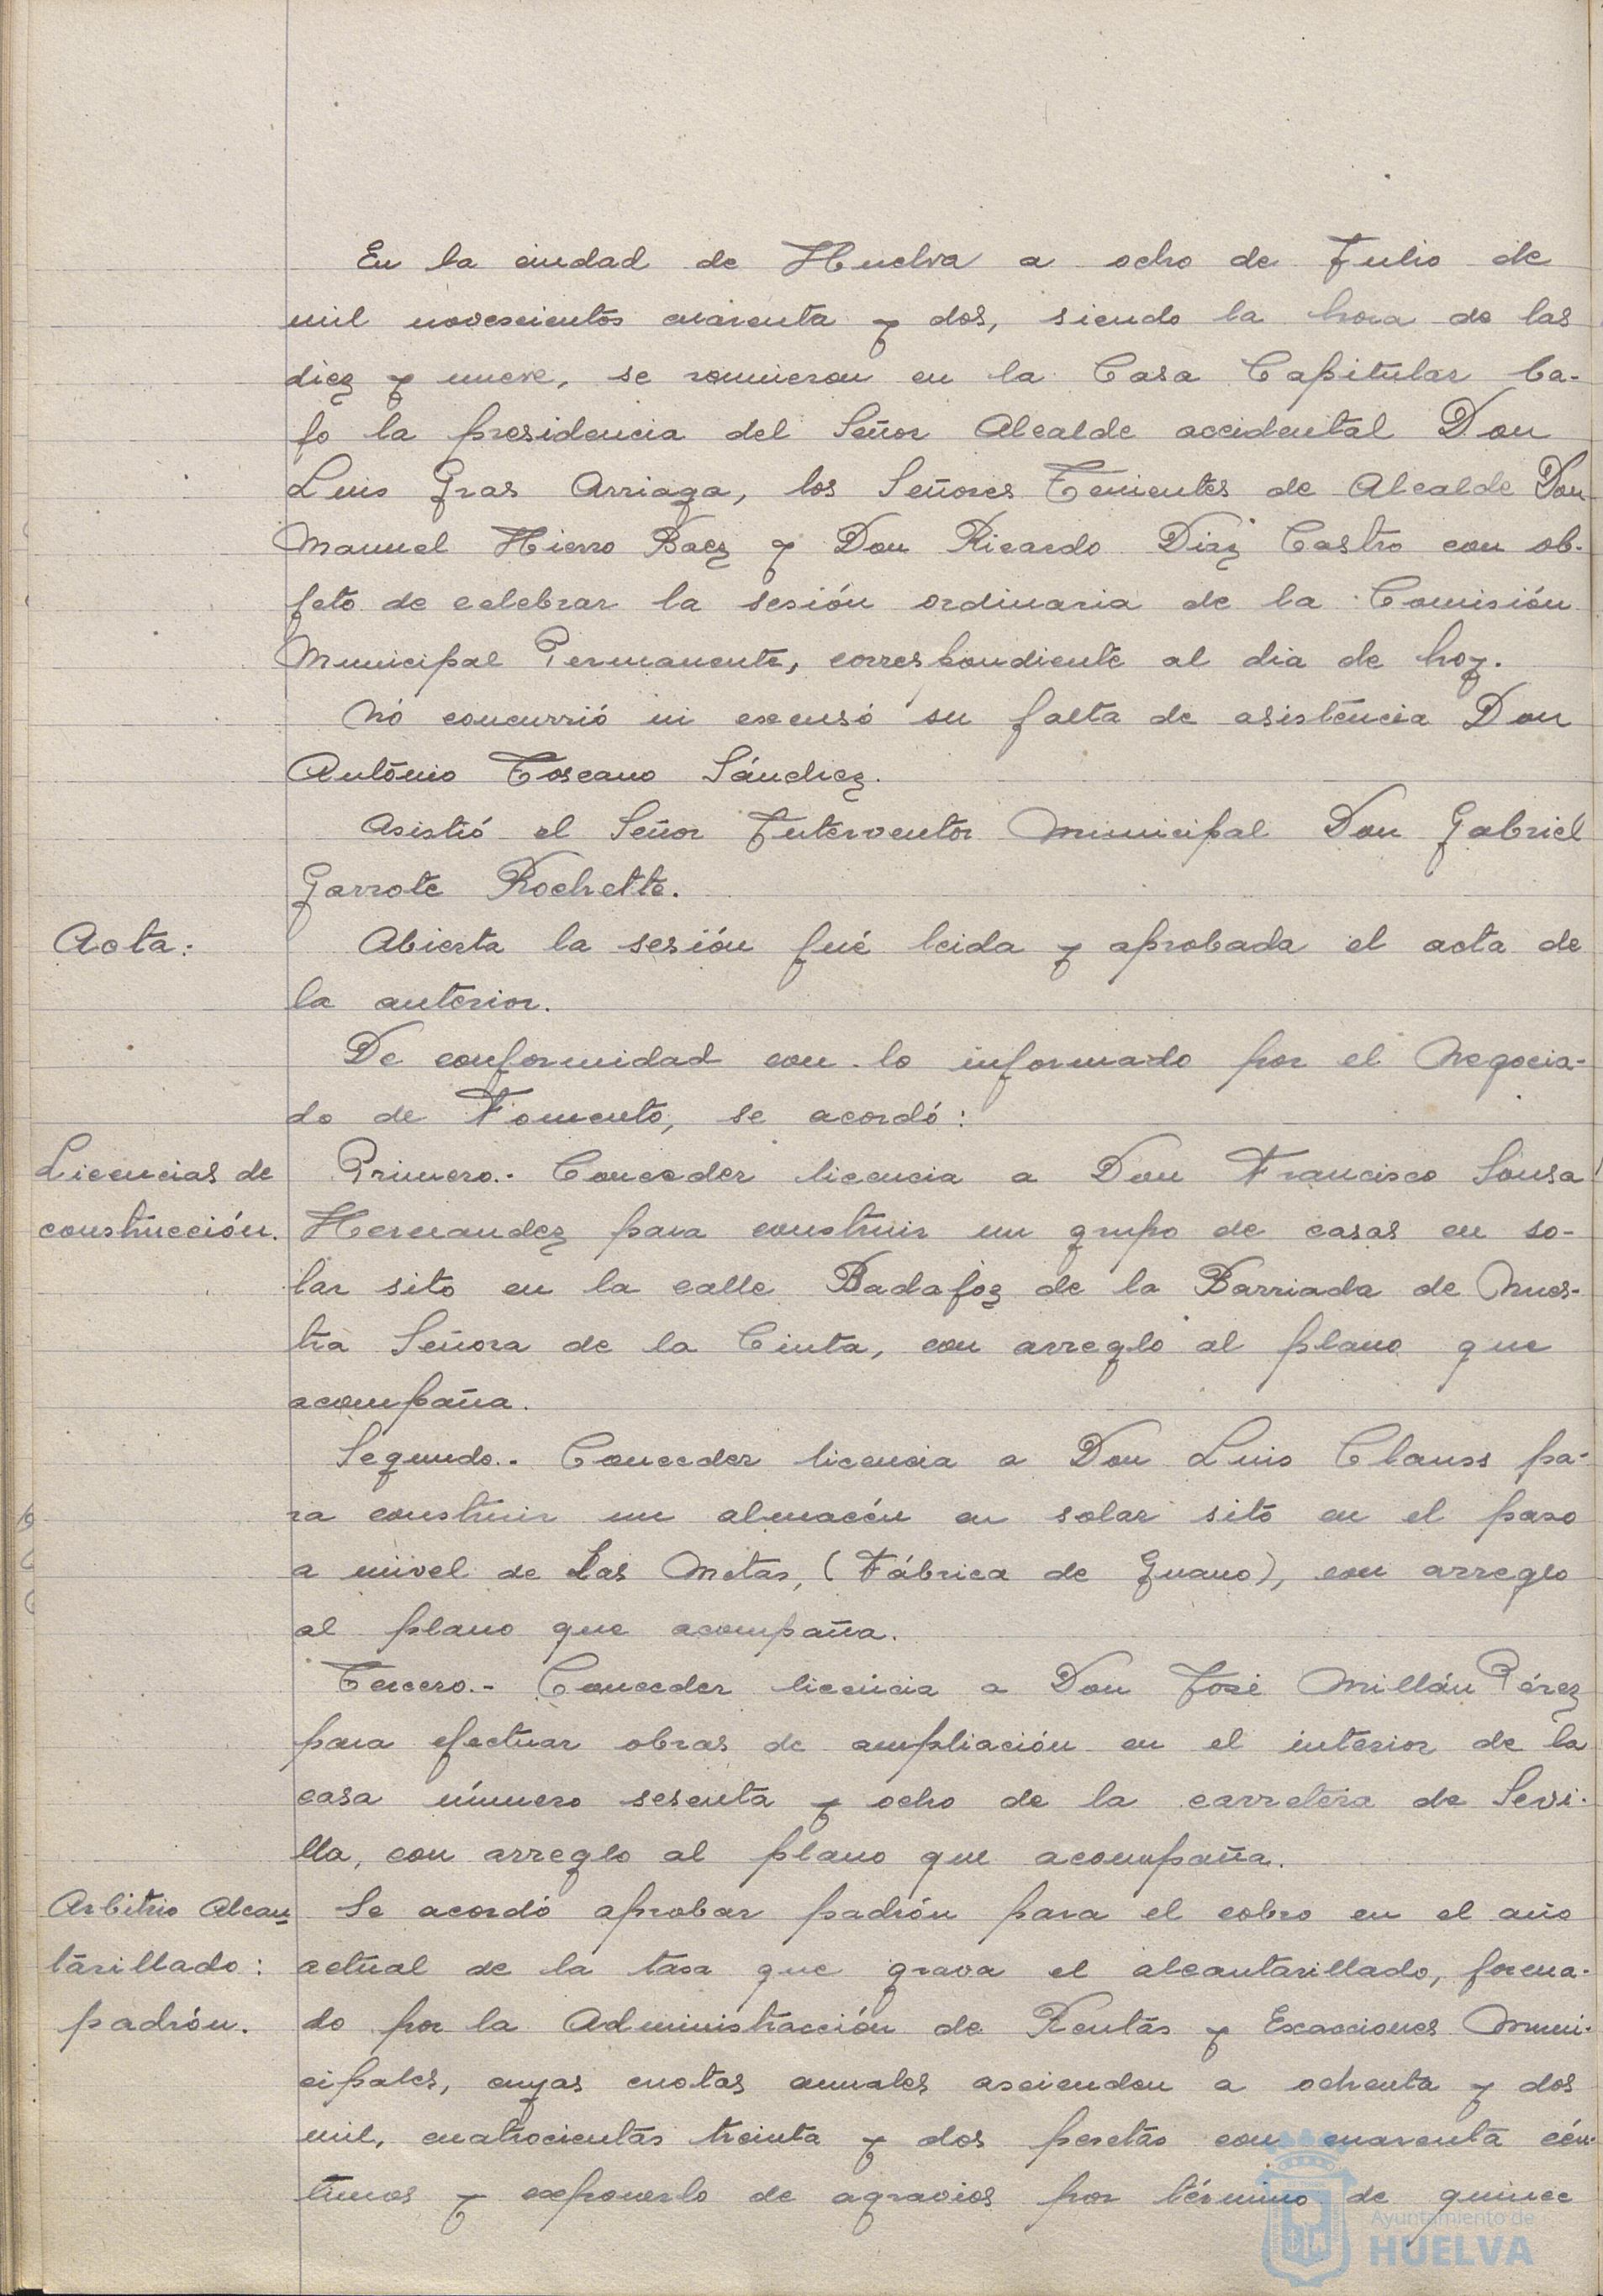 En la ciudad de Huelva a ocho de Julio de
mil novescientos cuarenta y dos, siendo la hora de las
diez y nueve, se reunieron en la Casa Capitular ba-
jo la presidencia del Señor Alcalde accidental Don
Luis Gras Arriaga, los Señores Tenientes de Alcalde Don
Manuel Hierro Baez y Don Ricardo Diaz Castro con ob-
jeto de celebrar la sesión ordinaria de la Comisión
Municipal Permanente, correspondiente al dia de hoy.
No concurrió ni excusó su falta de asistencia Don
Antonio Toscano Sánchez.
Asistió el Señor Interventor Municipal Don Gabriel
Garrote Rochette.
Acta:
Abierta la sesión fué leida y aprobada el acta de
la anterior.
De conformidad con lo informado por el Negocia-
do de Fomento, se acordó:
Licencias de
construcción.
Primero.- Conceder licencia a Don Francisco Sousa
Hernandez para construir un grupo de casas en so-
lar sito en la calle Badajoz de la Barriada de Nues-
tra Señora de la Cinta, con arreglo al plano que
acompaña.
Segundo.- Conceder licencia a Don Luis Clauss pa-
ra construir un almacén en solar sito en el paso
a nivel de Las Metas, (Fábrica de Guano), con arreglo
al plano que acompaña.
Tercero.- Conceder licencia a Don José Millán Pérez
para efectuar obras de ampliación en el interior de la
casa número sesenta y ocho de la carretera de Sevi-
lla, con arreglo al plano que acompaña.
Arbitrio Alcan-
tarillado:
padrón.
Se acordó aprobar padrón para el cobro en el año
actual de la tasa que grava el alcantarillado, forma-
do por la Administracción de Rentas y Exacciones Muni-
cipales, cuyas cuotas anuales ascienden a ochenta y dos
mil, cuatrocientas treinta y dos pesetas con cuarenta cén-
timos y exponerlo de agravios por término de quince
Ayuntamiento de
HUELVA